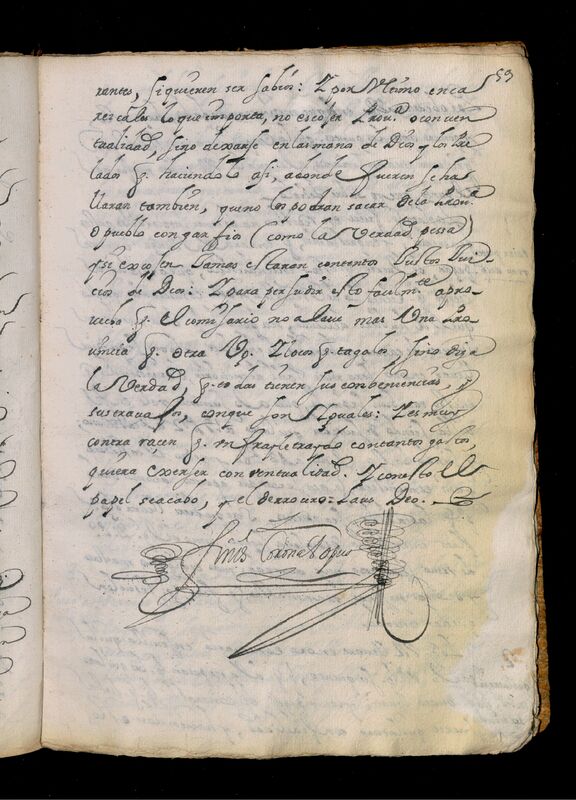 59
rantes, si quieren ser sabios: Y por Ultimo encar
rezcales lo que importa, no escojer Prov.ª o conven
tualidad, sino dexarse en las manos de Dios y los Pre
lados q. haciendolo asi, adonde fueren se ha
llaran tambien, que no los podran sacar de la Prov.ª
o pueblo con garfios (como la Verdad pessa)
y si escojen Jamas estaran contentos Justos Jui
cios de Dios: Y para persudir esto facilm.te apro
vecha q. el comissario no alave mas Una Pro
vincia q. otra Vg. Ylocos q. tagalos, sino diga
la Verdad, q. todas tienen sus conbeniencias, y
sus travajos, conque son Yguales: Y es muy
contra raçon q. un frayle traydo con tantos gastos,
quiera escojer conventualidad. Y con esto el
papel se acabo, y el derrotero: Laus Deo.
Finis Coronat Opus